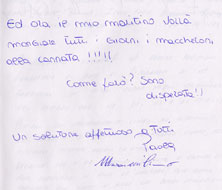 Ed ora il mio maritino vorrà
mangiare tutti i giorni i maccheroni
alla cannata !!!!!
Come farò? Sono
disperata!!
Un salutone affettuoso a Tutti
Paola